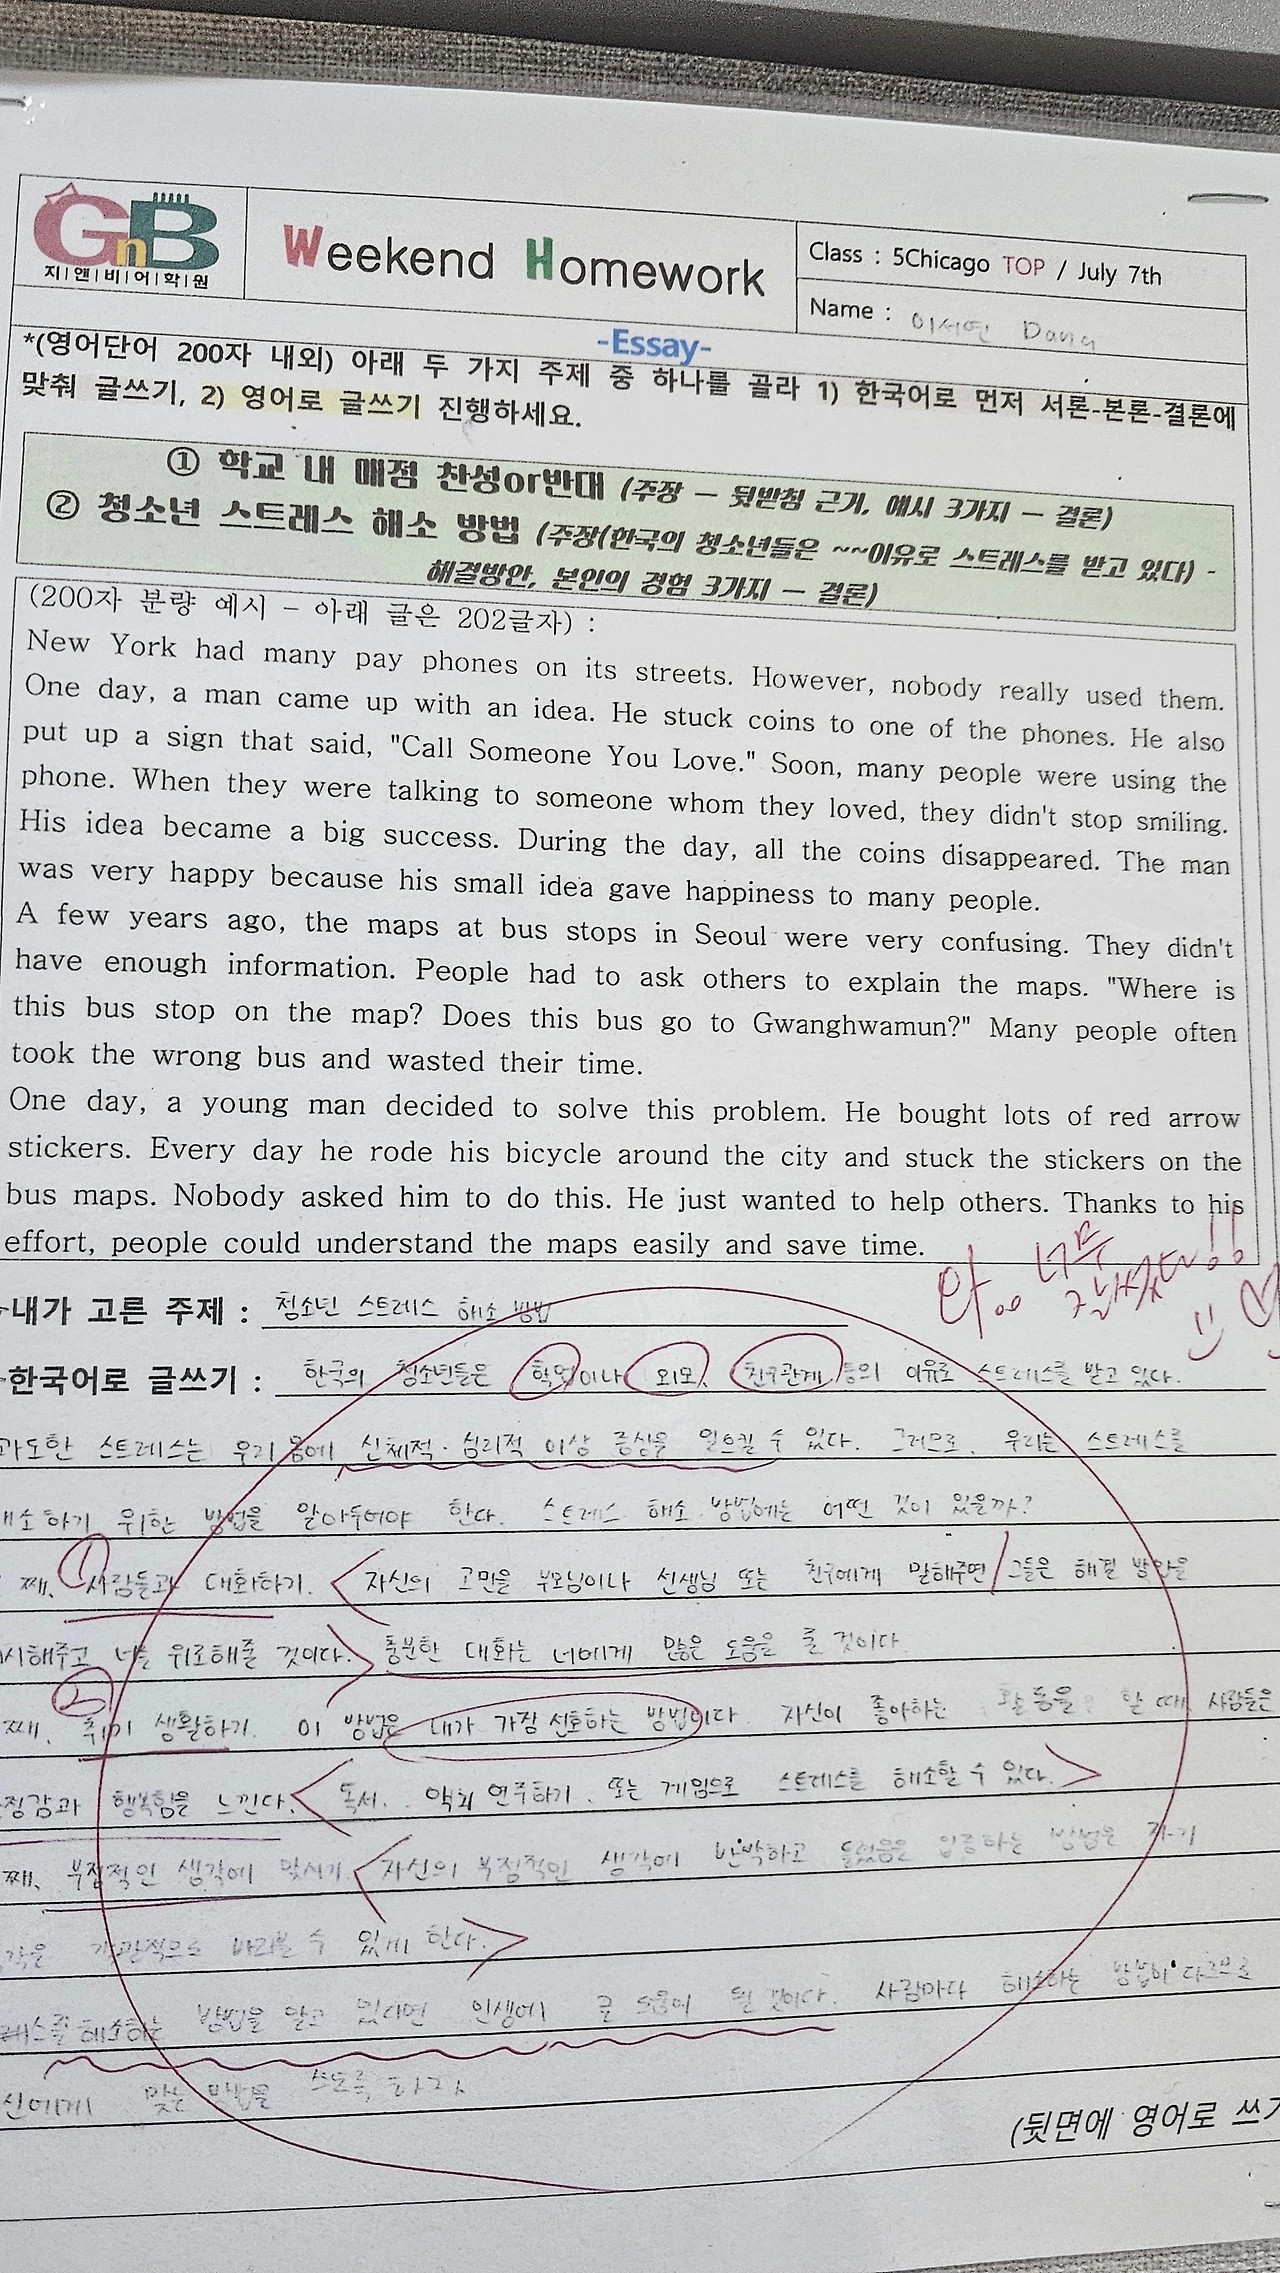 GnB
지|앤|비|어|학|원
Weekend Homework
Class : 5Chicago TOP / July 7th
Name : 이서연 Dana
-Essay-
*(영어단어 200자 내외) 아래 두 가지 주제 중 하나를 골라 1) 한국어로 먼저 서론-본론-결론에
맞춰 글쓰기, 2) 영어로 글쓰기 진행하세요.
① 학교 내 매점 찬성or반대 (주장 – 뒷받침 근거, 예시 3가지 – 결론)
② 청소년 스트레스 해소 방법 (주장(한국의 청소년들은 ~~이유로 스트레스를 받고 있다) -
해결방안, 본인의 경험 3가지 – 결론)
(200자 분량 예시 - 아래 글은 202글자) :
New York had many pay phones on its streets. However, nobody really used them.
One day, a man came up with an idea. He stuck coins to one of the phones. He also
put up a sign that said, "Call Someone You Love." Soon, many people were using the
phone. When they were talking to someone whom they loved, they didn't stop smiling.
His idea became a big success. During the day, all the coins disappeared. The man
was very happy because his small idea gave happiness to many people.
A few years ago, the maps at bus stops in Seoul were very confusing. They didn't
have enough information. People had to ask others to explain the maps. "Where is
this bus stop on the map? Does this bus go to Gwanghwamun?" Many people often
took the wrong bus and wasted their time.
One day, a young man decided to solve this problem. He bought lots of red arrow
stickers. Every day he rode his bicycle around the city and stuck the stickers on the
bus maps. Nobody asked him to do this. He just wanted to help others. Thanks to his
effort, people could understand the maps easily and save time.
와.. 너무 잘썼다!!
-내가 고른 주제 : 청소년 스트레스 해소 방법
-한국어로 글쓰기 : 한국의 청소년들은 학업이나 외모, 친구관계 등의 이유로 스트레스를 받고 있다.
과도한 스트레스는 우리 몸에 신체적·심리적 이상 증상을 일으킬 수 있다. 그러므로, 우리는 스트레스를
해소하기 위한 방법을 알아두어야 한다. 스트레스 해소 방법에는 어떤 것이 있을까?
째, ① 사람들과 대화하기. 자신의 고민을 부모님이나 선생님 또는 친구에게 말해주면 그들은 해결 방안을
시해주고 너를 위로해줄 것이다. 충분한 대화는 너에게 많은 도움을 줄 것이다.
째, ② 취미 생활하기. 이 방법은 내가 가장 선호하는 방법이다. 자신이 좋아하는 활동을 할 때, 사람들은
정감과 행복함을 느낀다. 독서, 악기 연주하기, 또는 게임으로 스트레스를 해소할 수 있다.
째, 부정적인 생각에 맞서기. 자신의 부정적인 생각에 반박하고 틀렸음을 입증하는 방법은 자기
각은 객관적으로 바라볼 수 있게 한다.
레스를 해소하는 방법을 알고 있다면 인생에 큰 도움이 될 것이다. 사람마다 해소하는 방법이 다르므로
신에게 맞는 방법을 하자
(뒷면에 영어로 쓰기